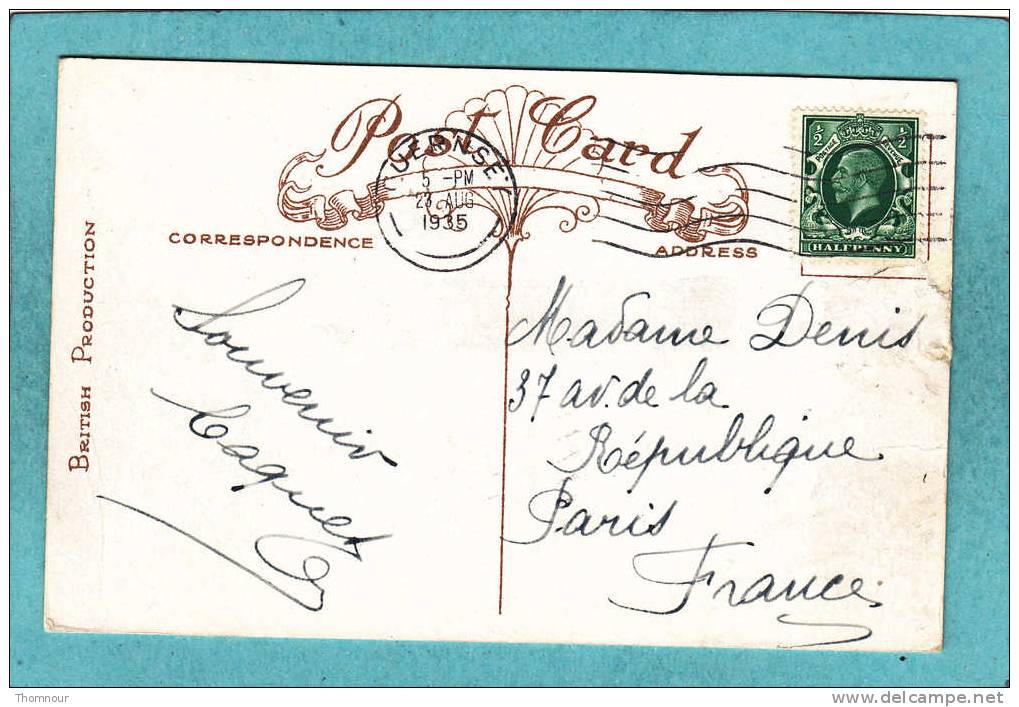 Post Card
GUERNSEY
5 - PM
23 AUG
1935
½ ½
POSTAGE REVENUE
HALFPENNY
CORRESPONDENCE
ADDRESS
BRITISH PRODUCTION
Souvenir
Caquet
Madame Denis
37 av. de la
République
Paris
France
Thomnour
www.delcampe.net